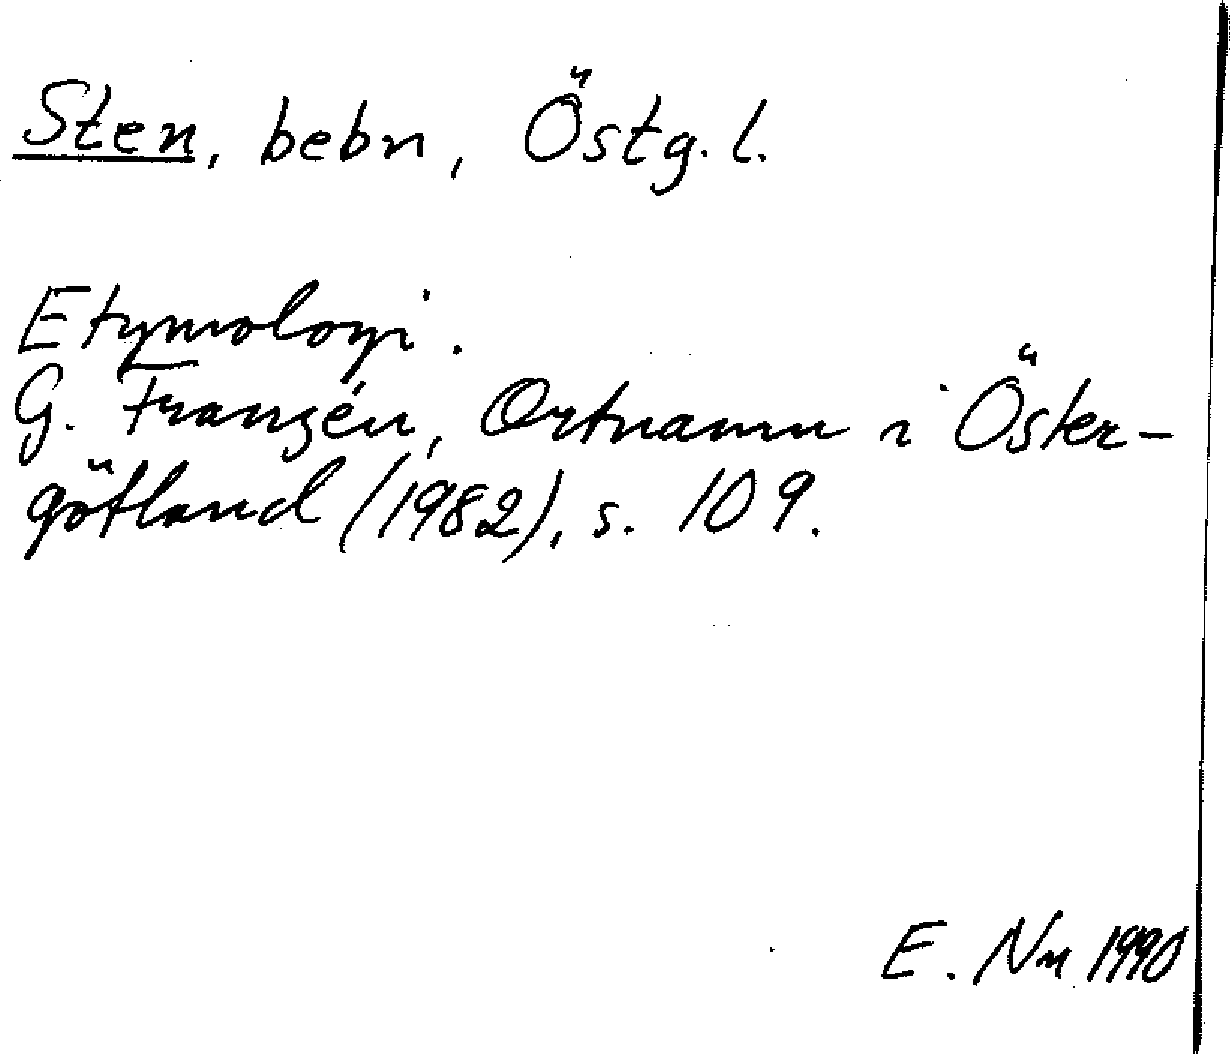 Sten, bebn, Östg. l.
Etymologi.
G. Franzén, Ortnamn i Öster-
götland (1982), s. 109.
E. Nn 1990